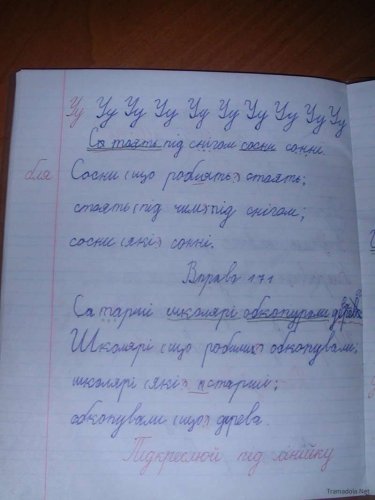 Уу Уу Уу Уу Уу Уу Уу Уу Уу Уу
Стоять під снігом сосни сонні.
бля Сосни (що роблять?) стоять;
стоять (під чим?) під снігом;
сосни (які?) сонні.
Вправа 171
Старші школярі обкопували дерева
Школярі (що робили?) обкопували;
школярі (які?) старші;
обкопували (що?) дерева.
Підкреслюй під лінійку
Tramadols.Net